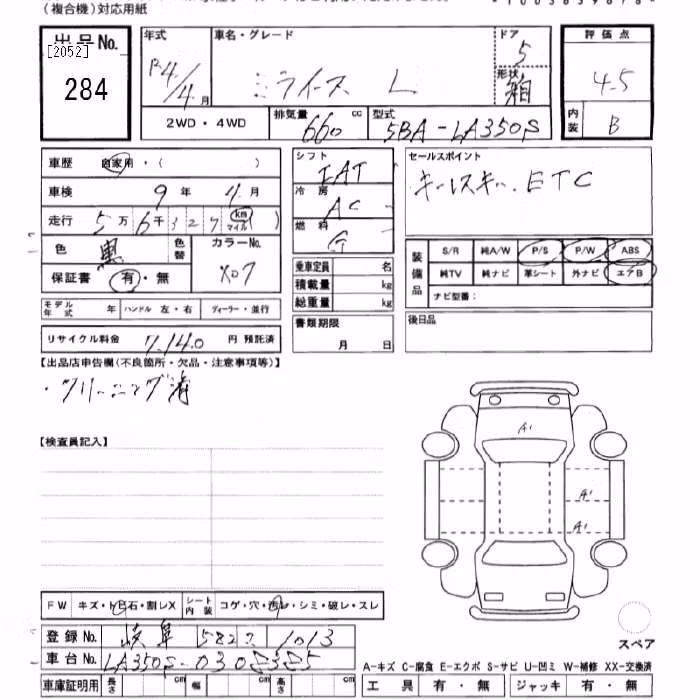 (複合機)対応用紙
出品No.
[2052]
284
年式
R4/4月
車名・グレード
ミライース L
ドア
5
形状
箱
評価点
4.5
2WD・4WD
排気量
660 cc
型式
5BA-LA350S
内装
B
車歴 自家用・( )
車検 9年 4月
走行 5万6千327 km マイル ( )
色 黒 色替
カラーNo.
X07
保証書 有・無
モデル年式 年 ハンドル 左・右 ディーラー・並行
リサイクル料金 7,140 円 預託済
シフト
IAT
冷房
AC
燃料
G
乗車定員 名
積載量 kg
総重量 kg
書類期限
月 日
セールスポイント
キーレスキー、ETC
装備品
S/R 純A/W P/S P/W ABS
純TV 純ナビ 革シート 外ナビ エアB
ナビ型番:
後日品
【出品店申告欄(不良箇所・欠品・注意事項等)】
・クリーニング済
【検査員記入】
A1
A1
A1
FW キズ・トビ石・割レX シート内装 コゲ・穴・汚レ・シミ・破レ・スレ
登録No. 岐阜 582 1013
車台No. LA350S-0308385
車庫証明用 長さ cm 幅 cm 高さ cm
スペア
A-キズ C-腐食 E-エクボ S-サビ U-凹ミ W-補修 XX-交換済
工具 有・無 ジャッキ 有・無